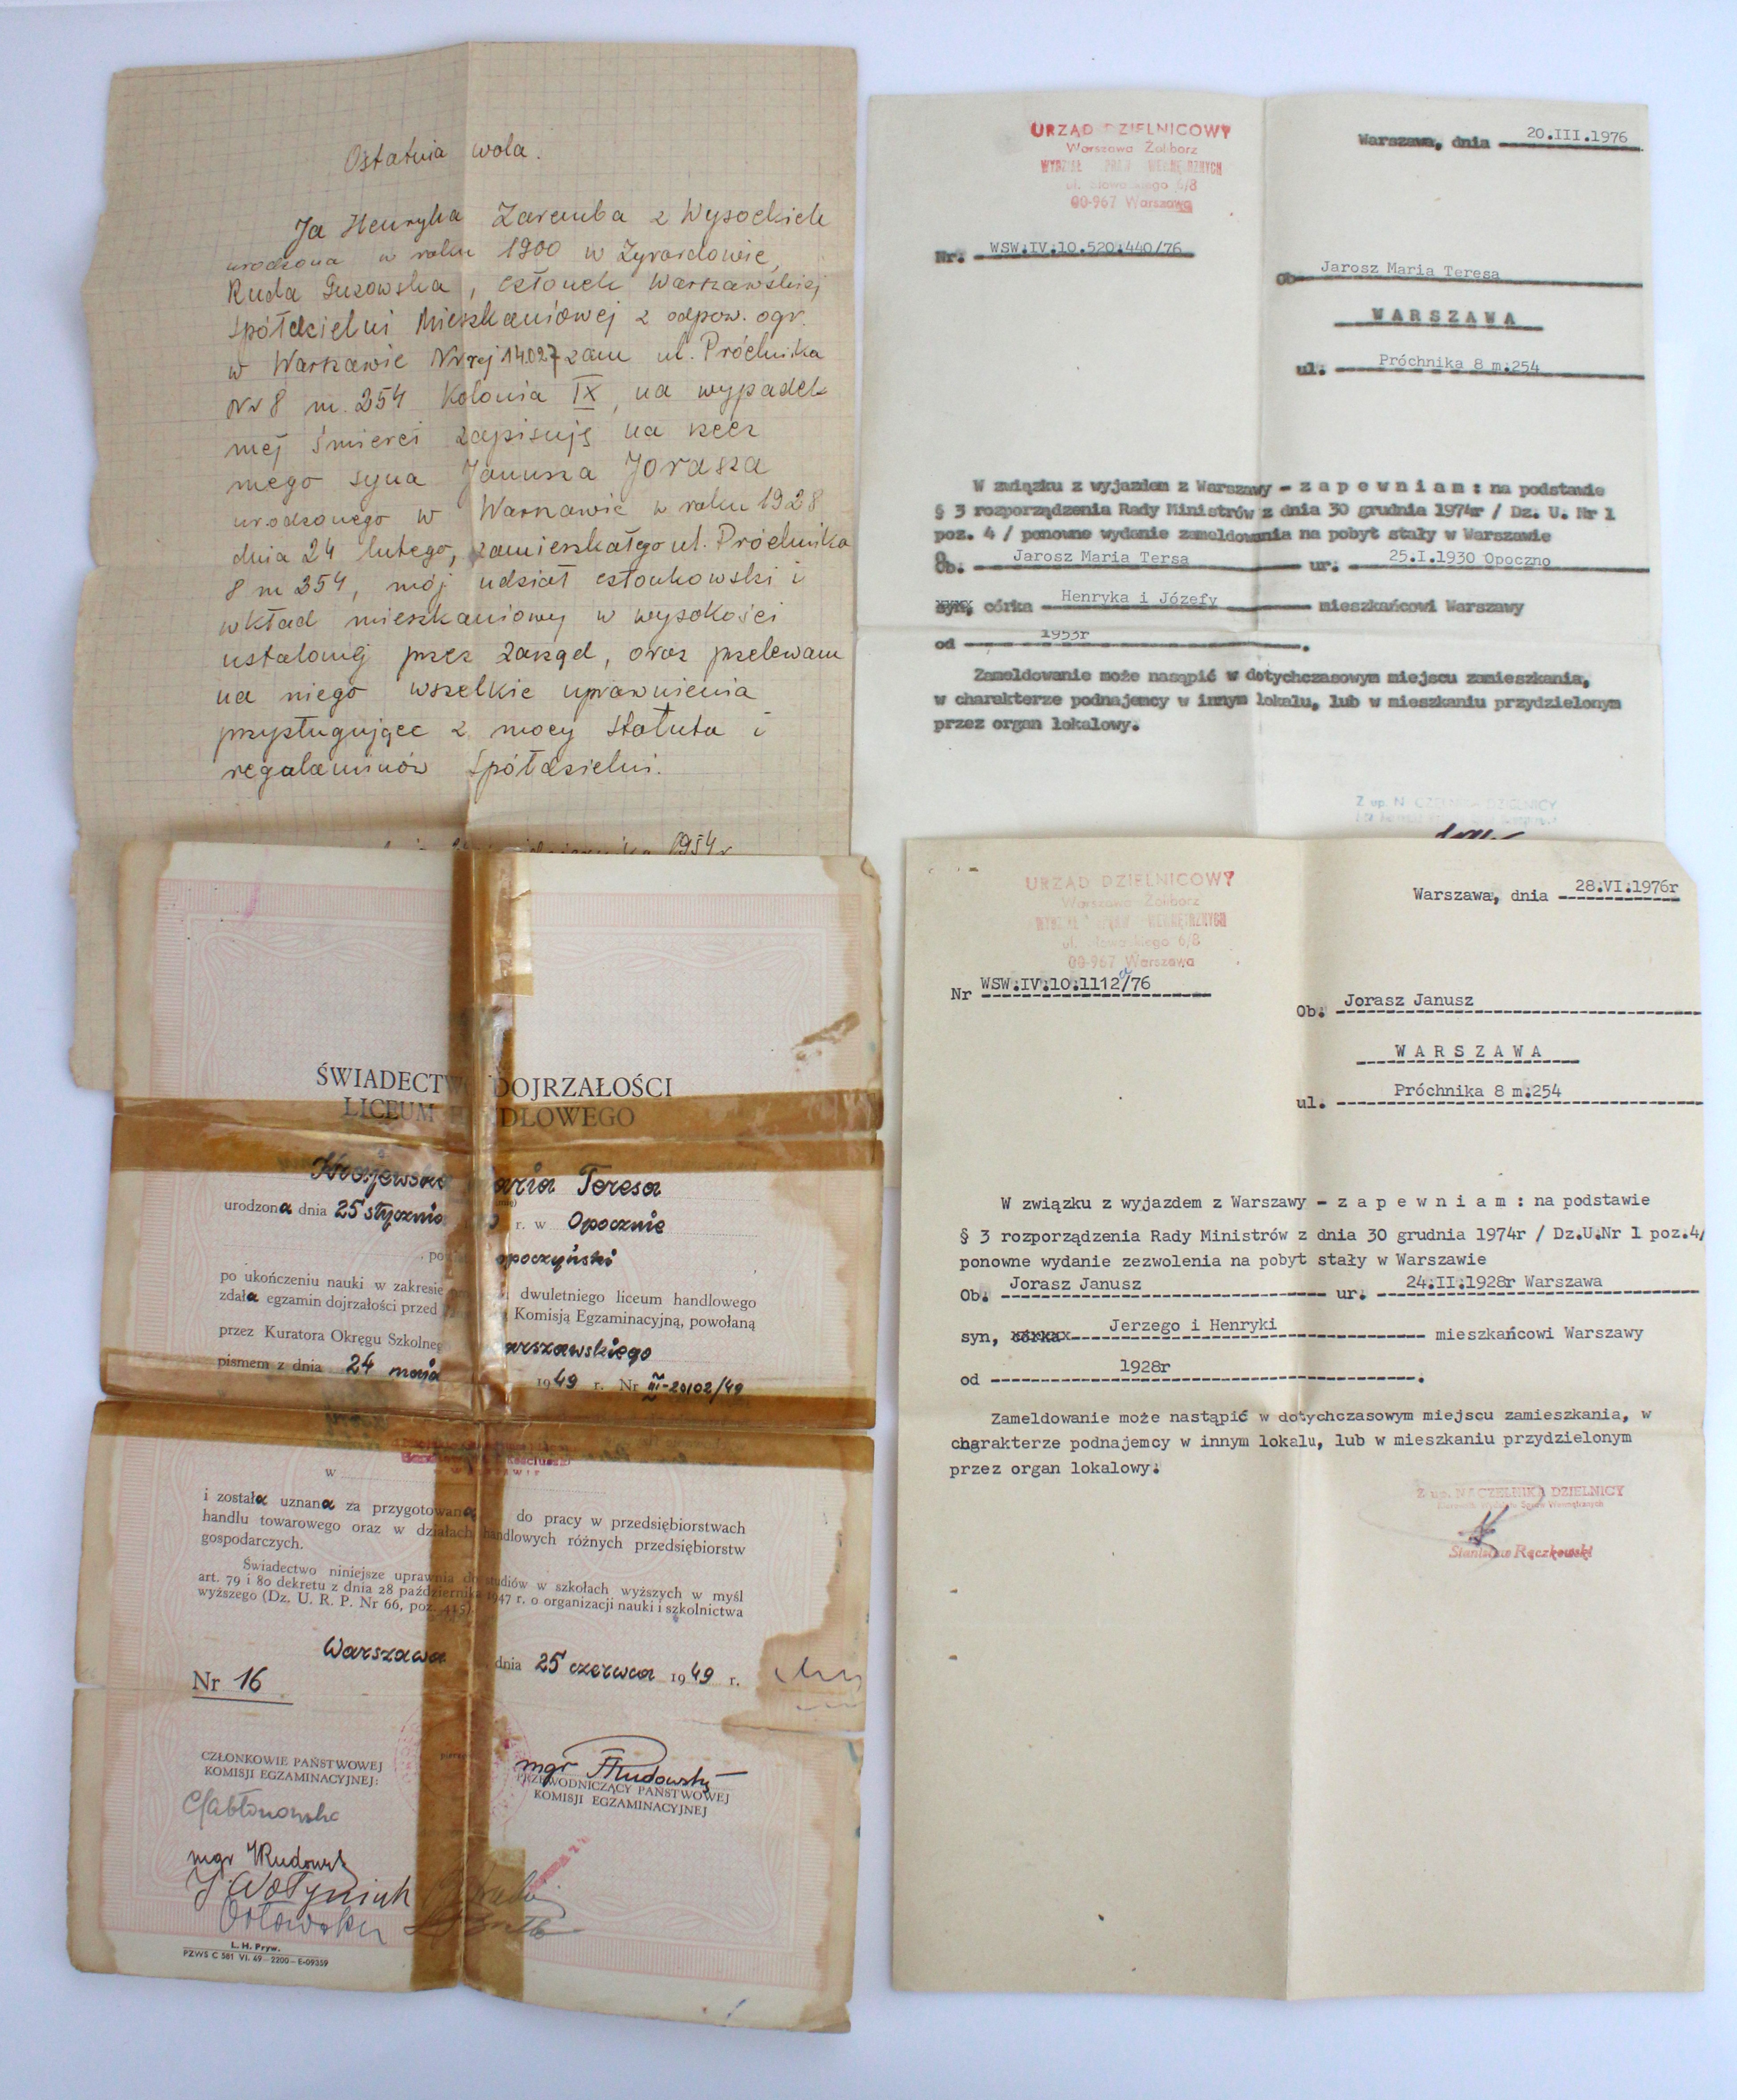 Ostatnia wola.
Ja Henryka Zaremba z Wysockich
urodzona w roku 1900 w Żyrardowie,
Ruda Guzowska, członek Warszawskiej
Spółdzielni Mieszkaniowej z odpow. ogr.
w Warszawie Nr rej 14.027 zam ul. Próchnika
Nr 8 m. 254 Kolonia IX, na wypadek
mej śmierci zapisuję na rzecz
mego syna Janusza Jorasza
urodzonego w Warszawie w roku 1928
dnia 24 lutego, zamieszkałego ul. Próchnika
8 m 254, mój udział członkowski i
wkład mieszkaniowy w wysokości
ustalonej przez Zarząd, oraz przelewam
na niego wszelkie uprawnienia
przysługujące z mocy statutu i
regulaminów Spółdzielni.
1954r
URZĄD DZIELNICOWY
Warszawa Żoliborz
00-967 Warszawa
Warszawa, dnia 20.III.1976
Nr. WSW.IV.10.520.440/76
Ob Jarosz Maria Teresa
WARSZAWA
ul. Próchnika 8 m.254
W związku z wyjazdem z Warszawy - z a p e w n i a m : na podstawie
§ 3 rozporządzenia Rady Ministrów z dnia 30 grudnia 1974r / Dz. U. Nr 1
poz. 4 / ponowne wydanie zameldowania na pobyt stały w Warszawie
Ob. Jarosz Maria Tersa ur. 25.I.1930 Opoczno
córka Henryka i Józefy mieszkańcowi Warszawy
od 1953r.
Zameldowanie może nasąpić w dotychczasowym miejscu zamieszkania,
w charakterze podnajemcy w innym lokalu, lub w mieszkaniu przydzielonym
przez organ lokalowy.
ŚWIADECTWO DOJRZAŁOŚCI
LICEUM HANDLOWEGO
Krajewska Maria Teresa
urodzona dnia 25 stycznia r. w Opocznie
opoczyński
po ukończeniu nauki w zakresie dwuletniego liceum handlowego
zdała egzamin dojrzałości przed Komisją Egzaminacyjną, powołaną
przez Kuratora Okręgu Szkolnego Warszawskiego
pismem z dnia 24 maja 1949 r. Nr III-20102/49
w
i została uznana za przygotowaną do pracy w przedsiębiorstwach
handlu towarowego oraz w działach handlowych różnych przedsiębiorstw
gospodarczych.
Świadectwo niniejsze uprawnia do studiów w szkołach wyższych w myśl
art. 79 i 80 dekretu z dnia 28 października 1947 r. o organizacji nauki i szkolnictwa
wyższego (Dz. U. R. P. Nr 66, poz. 415).
Warszawa dnia 25 czerwca 1949 r.
Nr 16
CZŁONKOWIE PAŃSTWOWEJ
KOMISJI EGZAMINACYJNEJ:
mgr
PRZEWODNICZĄCY PAŃSTWOWEJ
KOMISJI EGZAMINACYJNEJ
mgr
L. H. Pryw.
PZWS C 581 VI. 49—2200—E-09359
URZĄD DZIELNICOWY
Warszawa Żoliborz
00-967 Warszawa
Warszawa, dnia 28.VI.1976r
Nr WSW.IV.10.1112/76
Ob. Jorasz Janusz
W A R S Z A W A
ul. Próchnika 8 m.254
W związku z wyjazdem z Warszawy - z a p e w n i a m : na podstawie
§ 3 rozporządzenia Rady Ministrów z dnia 30 grudnia 1974r / Dz.U.Nr 1 poz.4/
ponowne wydanie zezwolenia na pobyt stały w Warszawie
Ob. Jorasz Janusz ur. 24.II.1928r Warszawa
syn, córka Jerzego i Henryki mieszkańcowi Warszawy
od 1928r.
Zameldowanie może nastąpić w dotychczasowym miejscu zamieszkania, w
charakterze podnajemcy w innym lokalu, lub w mieszkaniu przydzielonym
przez organ lokalowy.
Z up. NACZELNIKA DZIELNICY
Stanisław Rączkowski